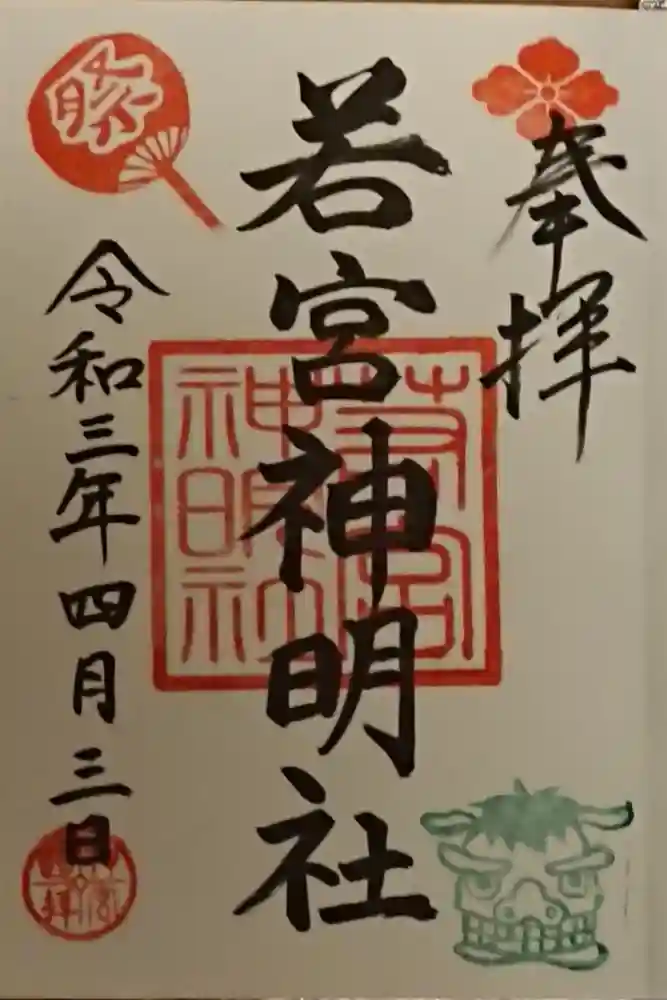 奉拝
若宮神明社
若宮
神明社
令和三年四月三日
祭